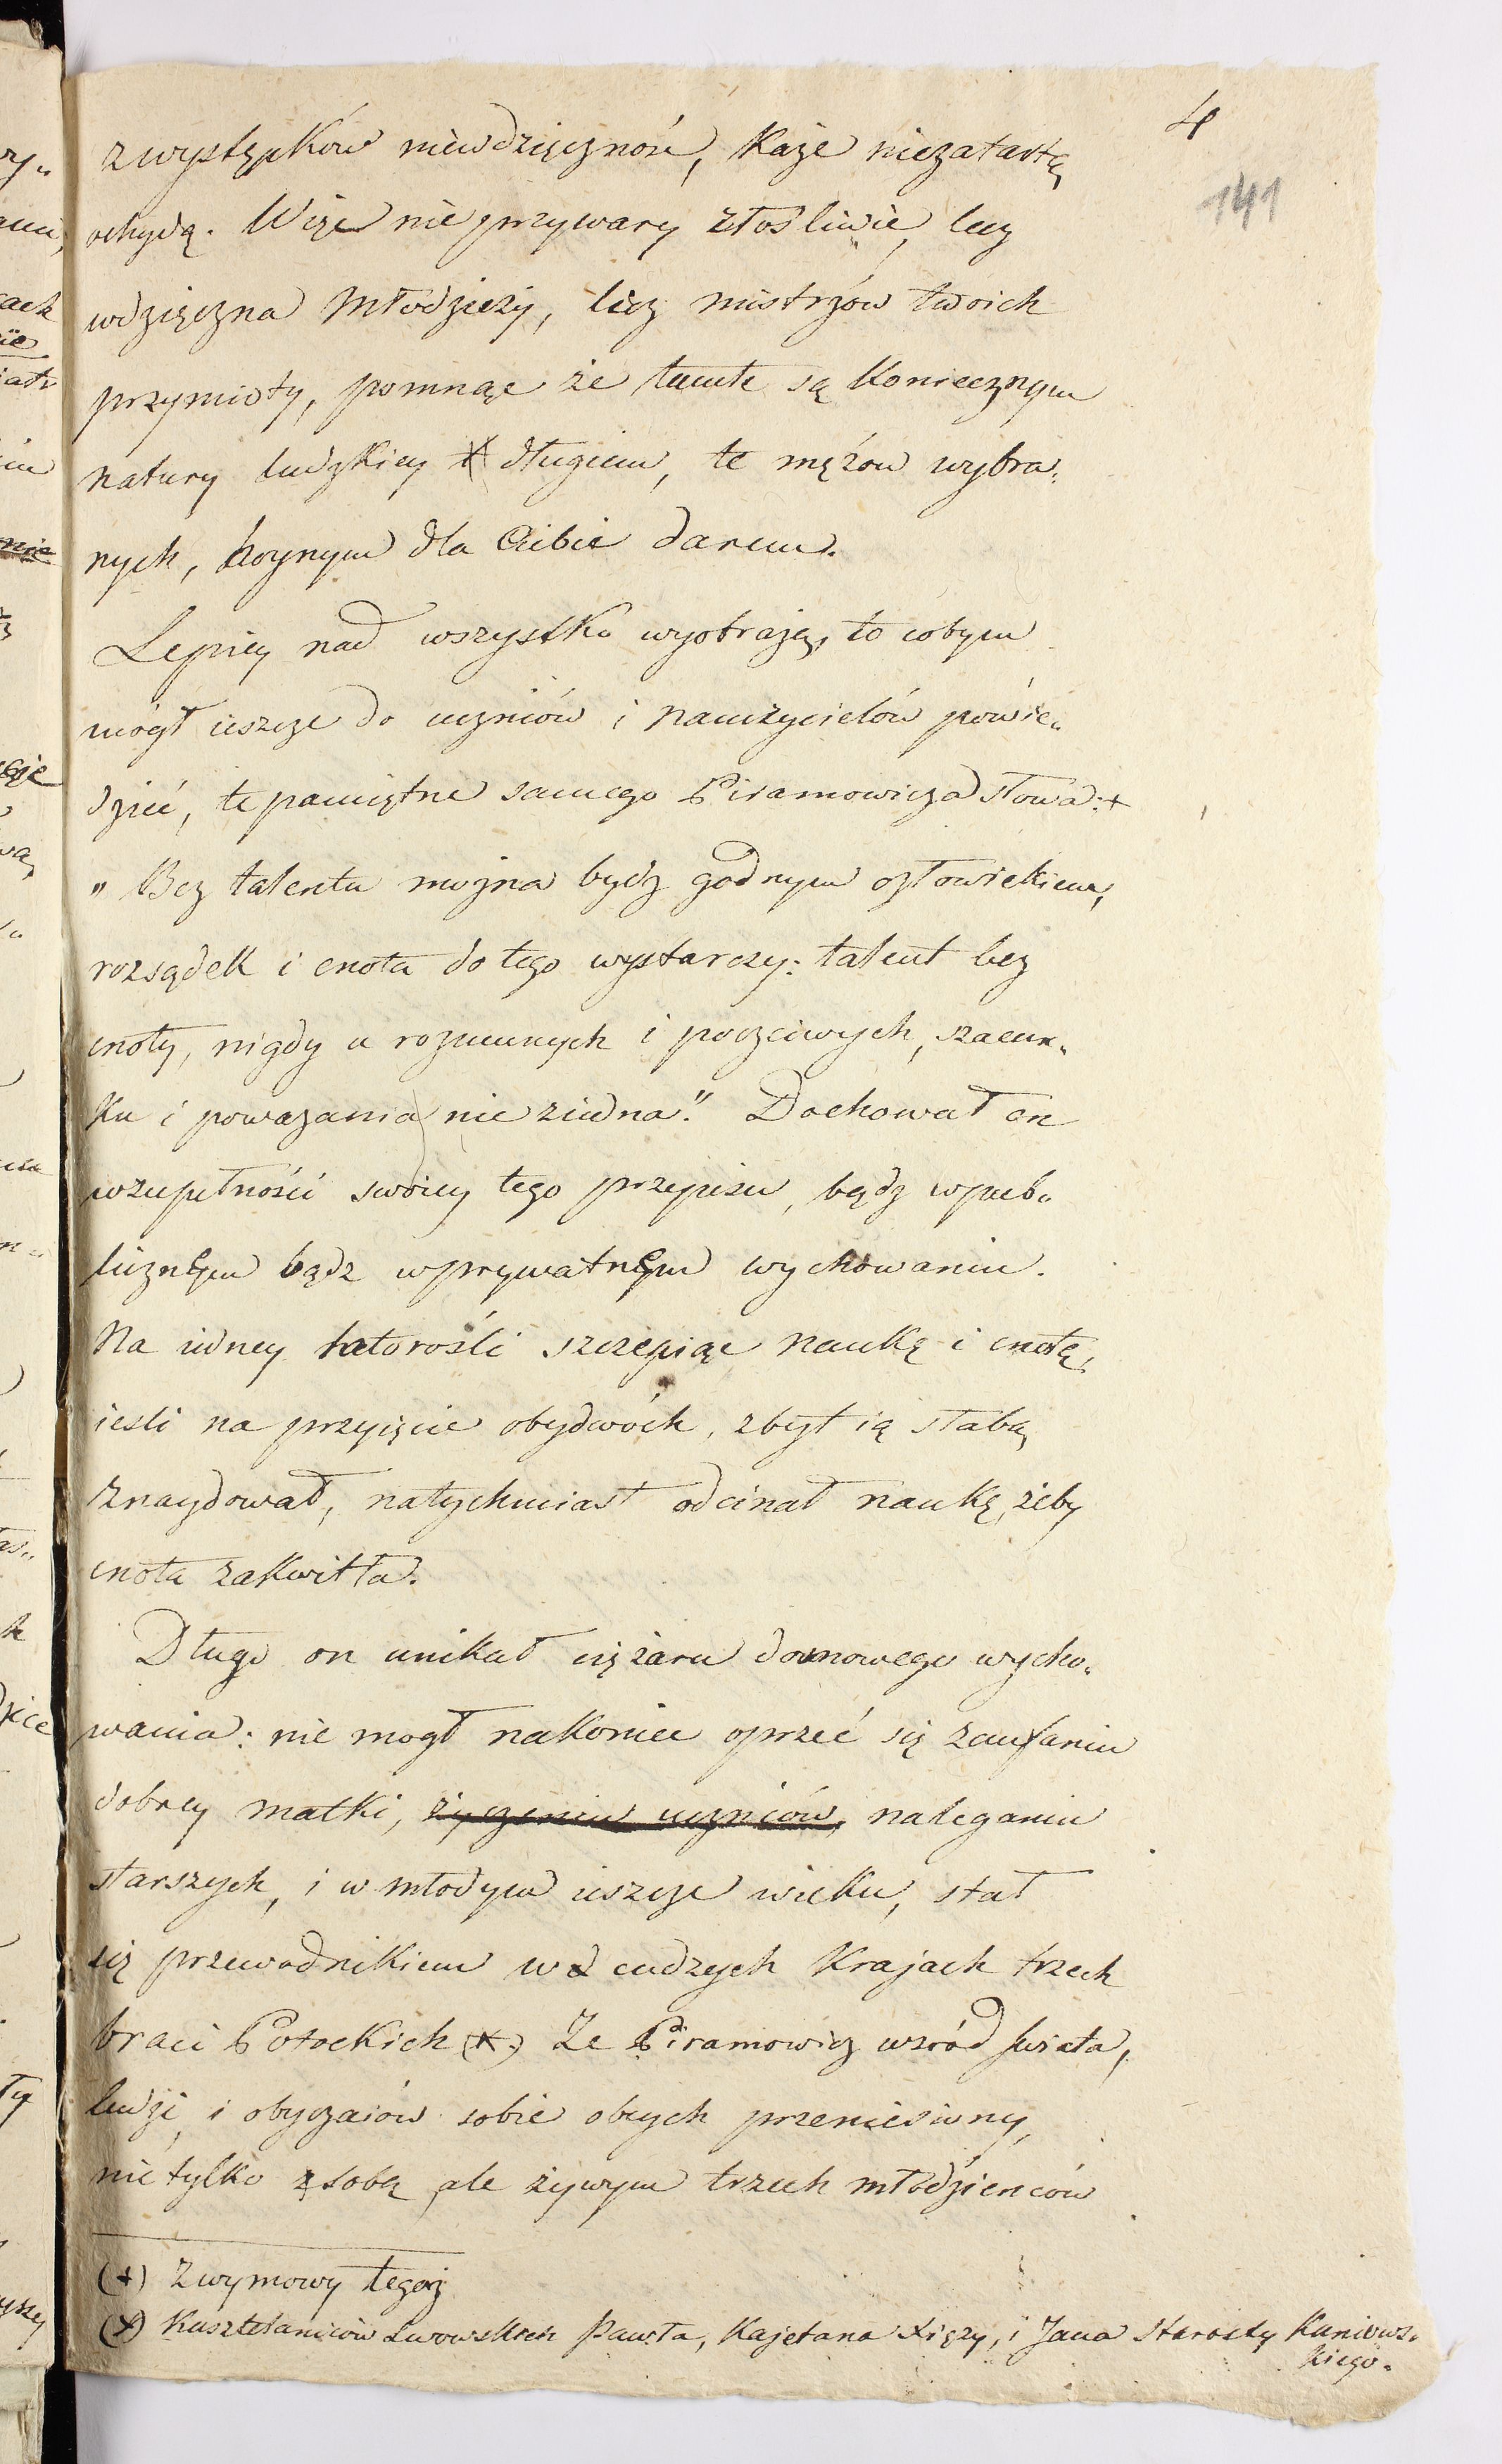 4
141
z występków niewdzięczność, każe niezatartą
ochydą. Więc nie przywary złośliwie, lecz
wdzięczna Młodzieży, licz mistrzów twoich
przymioty, pomnąc że tamte są koniecznym
natury ludzkiey długiem, te mężów wybra„
nych, hoynym dla Ciebie darem.
Lepiey nad wszystko wyobrażą, to cobym
mógł ieszcze do uczniów i nauczycielów powie„
dzieć, te pamiętne samego Piramowicza słowa: +
„ Bez talentu można bydź godnym człowiekiem,
rozsądek i cnota do tego wystarczy: talent bez
cnoty, nigdy u rozumnych i poczciwych, szacun„
ku i poważania nie ziedna." Dochował on
w zupełności swoiey tego przepisu, bądź w pub„
licznym bądz w prywatnym wychowaniu.
Na iedney latorośli szczepiąc naukę i cnotę,
iesli na przyięcie obydwóch, zbyt ią słabą
znaydował, natychmiast odcinał naukę, żeby
cnota zakwitła.
Długo on unikał ciężaru domowego wycho„
wania: nie mogł nakoniec oprzeć się zaufaniu
dobrey matki, życzeniu uczniów, naleganiu
starszych, i w młodym ieszcze wieku, stał
się przewodnikiem w cudzych krajach trzech
braci Potockich (+) Że Piramowicz wsród świata,
ludzi, i obyczaiów sobie obcych przeniesiony,
nie tylko z sobą ale żywym trzech młodzienców
(+) Z wymowy tegoż
(+) Kasztelaniców Lwowskich Pawła, Kajetana Xięży, i Jana Starosty Kaniows„
kiego.